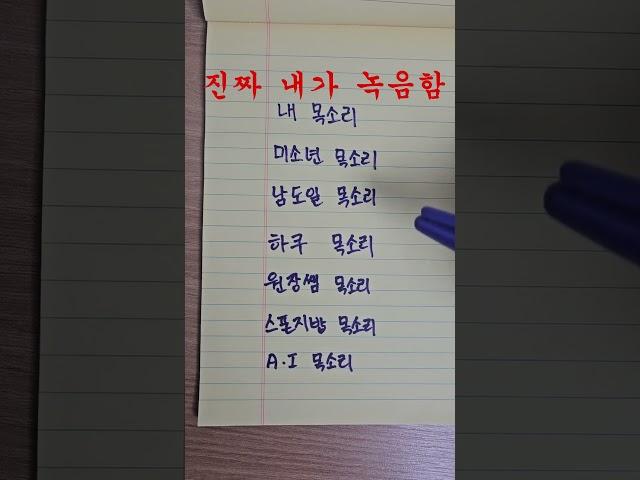 진짜 내가 녹음함
내 목소리
미소년 목소리
남도일 목소리
하쿠 목소리
원장쌤 목소리
스폰지밥 목소리
A.I 목소리